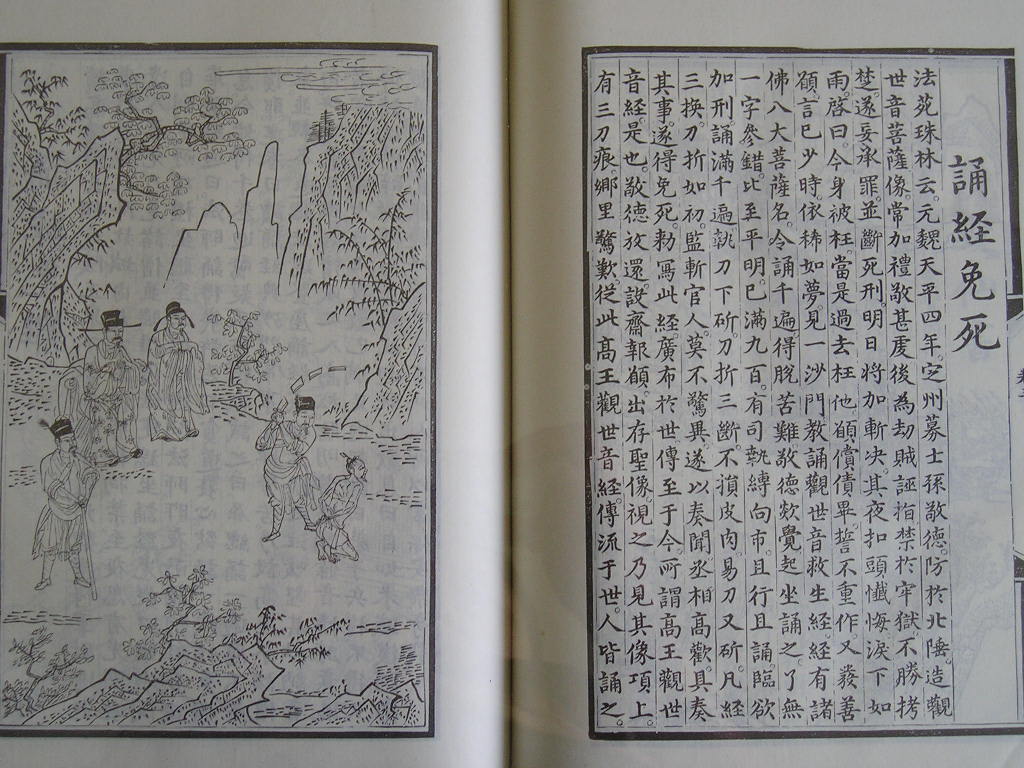 誦經免死
法苑珠林云。元魏天平四年。定州募士孫敬德。防於北陲。造觀
世音菩薩像。常加禮敬甚虔。後為劫賊誣指。禁於牢獄。不勝拷
楚。遂妄承罪。並斷死刑。明日將加斬决。其夜扣頭懺悔。淚下如
雨。啓曰。今身被枉。當是過去枉他。願償債畢。誓不重作。又發善
願。言已少時。依稀如夢。見一沙門。教誦觀世音救生經。經有諸
佛八大菩薩名。令誦千遍。得脫苦難。敬德欻覺。起坐誦之。了無
一字參錯。比至平明。已滿九百。有司執縛向市。且行且誦。臨欲
加刑。誦滿千遍。執刀下斫。刀折三斷。不損皮肉。易刀又斫。凡經
三換。刀折如初。監斬官人。莫不驚異。遂以奏聞。丞相高歡。具奏
其事。遂得免死。勅寫此經。廣布於世。傳至于今。所謂高王觀世
音經是也。敬德放還。設齋報願。出存聖像。視之乃見其像項上。
有三刀痕。鄉里驚歎。從此高王觀世音經。傳流于世。人皆誦之。